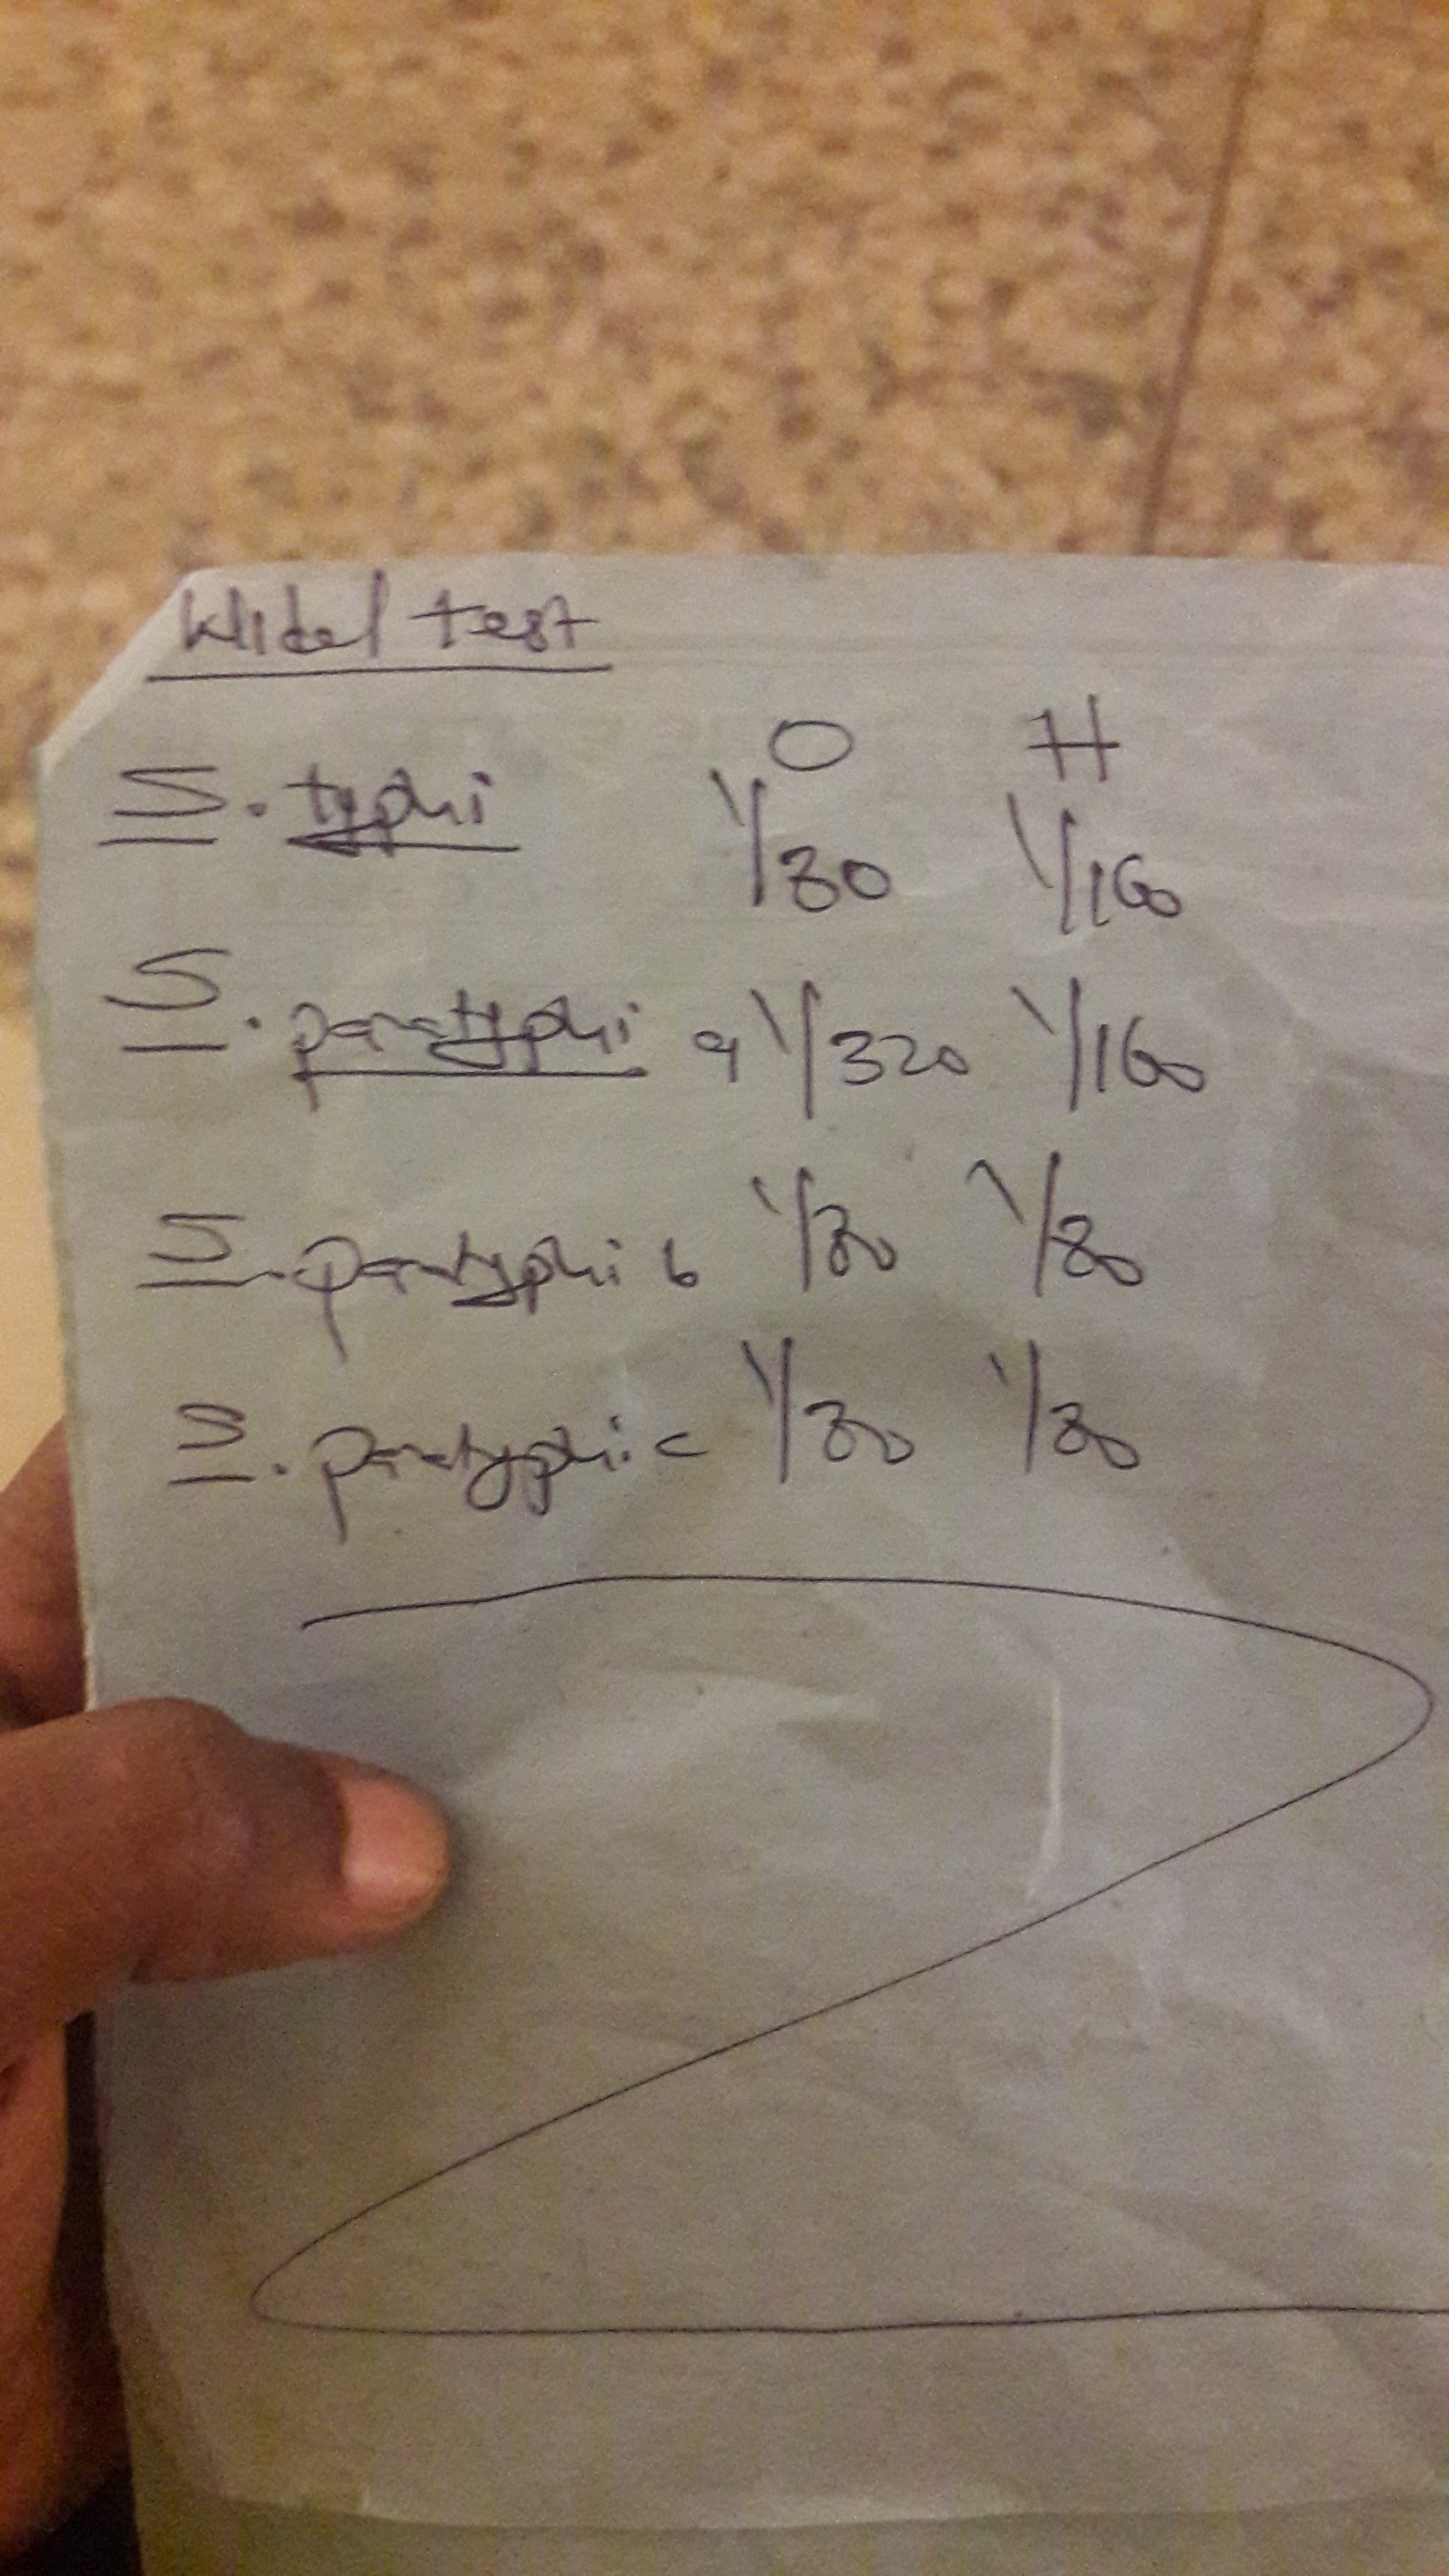 Widal test
O H
S. typhi 1/80 1/160
S. paratyphi a 1/320 1/160
S. paratyphi b 1/80 1/80
S. paratyphi c 1/80 1/80